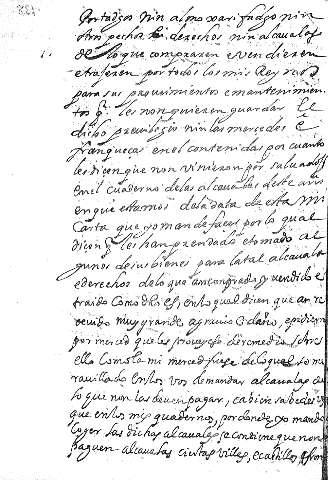 Portadgos nin almoxarifadgo nin
otro pecho ni derechos nin alcavalas
de lo que compraren e vendieren
e traxeren por todos los mis Reynos
para sus proveimientos e mantenimien
tos q les non quieren guardar el
dicho previlegio nin las mercedes e
franquezas en el contenidas por quanto
les dicen que non vinieron por salvados
en el cuaderno de las alcavalas deste año
en que estamos de la data de esta mi
Carta que yo mande facer por lo qual
dicen q les han prendado e tomado al
gunos de sus bienes para la tal alcavala
e derechos de lo que an comprado y vendido e
traido como dho es, en lo qual dicen que an re
cevido muy grande agravio e daño, e pidieron
por merced que les proveyese de remedio sobre
ello como la mi merced fuese de lo qual so ma
ravillado en los vos demandar alcavalas de
lo que non las deven pagar, ca bien sabedes
que en los mis quadernos, por donde yo mando
coger las dichas alcavalas se contiene que non
paguen alcavalas ciertas villas, e castillos